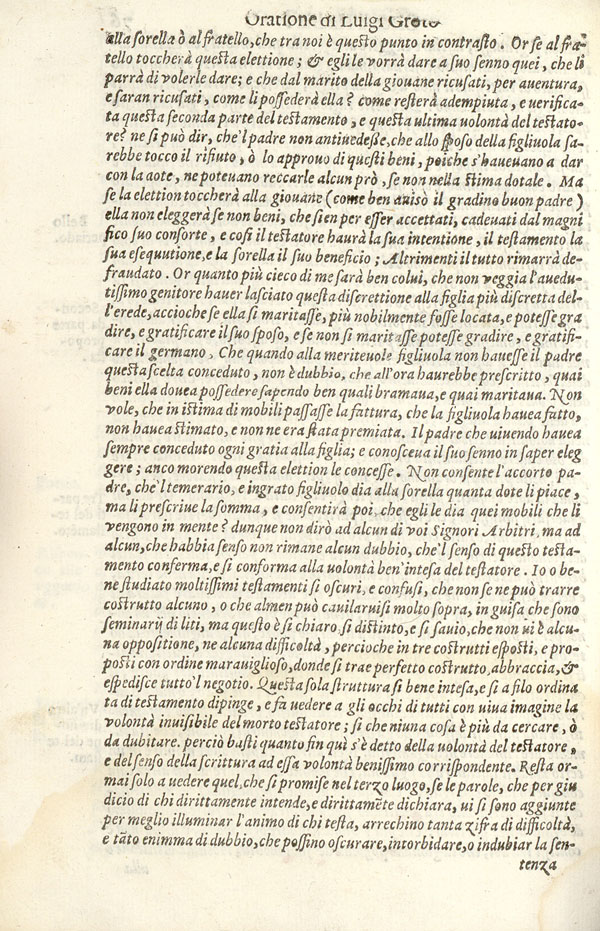 Oratione di Luigi Groto
alla sorella ò al fratello, che tra noi è questo punto in contrasto. Or se al fra
tello toccherà questa elettione; & egli le vorrà dare a suo senno quei, che li
parrà di volerle dare; e che dal marito della giouane ricusati, per auentura,
e saran ricusati, come li possederà ella? come resterà adempiuta, e uerifica-
ta questa seconda parte del testamento, e questa ultima volontà del testato-
re? ne si può dir, che'l padre non antiuedesse, che allo sposo della figliuola sa-
rebbe tocco il rifiuto, ò lo approuo di questi beni, poiche s'haueuano a dar
con la dote, ne poteuano reccarle alcun prò, se non nella stima dotale. Ma
se la elettion toccherà alla giouane (come ben auisò il gradino buon padre)
ella non eleggerà se non beni, che sien per esser accettati, cadeuati dal magni
fico suo consorte, e così il testatore haurà la sua intentione, il testamento la
sua essequutione, e la sorella il suo beneficio; Altrimenti il tutto rimarrà de-
fraudato. Or quanto più cieco di me sarà ben colui, che non veggia l'auedu-
tissimo genitore hauer lasciato questa discrettione alla figlia più discretta del-
l'erede, accioche se ella si maritasse, più nobilmente fosse locata, e potesse gra
dire, e gratificare il suo sposo, e se non si maritasse potesse gradire, e gratifi-
care il germano. Che quando alla meriteuole figliuola non hauesse il padre
questa scelta conceduto, non è dubbio, che all'ora haurebbe prescritto, quai
beni ella douea possedere sapendo ben quali bramaua, e quai maritaua. Non
vole, che in istima di mobili passasse la fattura, che la figliuola hauea fatto,
non hauea stimato, e non ne era stata premiata. Il padre che uiuendo hauea
sempre conceduto ogni gratia alla figlia; e conosceua il suo senno in saper eleg
gere; anco morendo questa elettion le concesse. Non consente l'accorto pa-
dre, che'l temerario, e ingrato figliuolo dia alla sorella quanta dote li piace,
ma li prescriue la somma, e consentirà poi, che egli le dia quei mobili che li
vengono in mente? dunque non dirò ad alcun di voi Signori Arbitri, ma ad
alcun, che habbia senso non rimane alcun dubbio, che'l senso di questo testa-
mento conferma, e si conforma alla volontà ben'intesa del testatore. Io o be-
ne studiato moltissimi testamenti si oscuri, e confusi, che non se ne può trarre
costrutto alcuno, o che almen può cauilaruisi molto sopra, in guisa che sono
seminarij di liti, ma questo è si chiaro, si distinto, e si sauio, che non ui è alcu-
na oppositione, ne alcuna difficoltà, percioche in tre costrutti esposti, e pro-
posti con ordine marauiglioso, donde si trae perfetto costrutto, abbraccia, &
espedisce tutto'l negotio. Questa sola struttura si bene intesa, e si a filo ordina
ta di testamento dipinge, e fa uedere a gli occhi di tutti con uiua imagine la
volontà inuisibile del morto testatore; si che niuna cosa è più da cercare, ò
da dubitare. perciò basti quanto fin quì s'è detto della volontà del testatore,
e del senso della scrittura ad essa volontà benissimo corrispondente. Resta or
mai solo a uedere quel, che si promise nel terzo luogo, se le parole, che per giu
dicio di chi dirittamente intende, e dirittamẽte dichiara, ui si sono aggiunte
per meglio illuminar l'animo di chi testa, arrechino tanta zifra di difficoltà,
e tãto enimma di dubbio, che possino oscurare, intorbidare, o indubiar la sen-
tenza